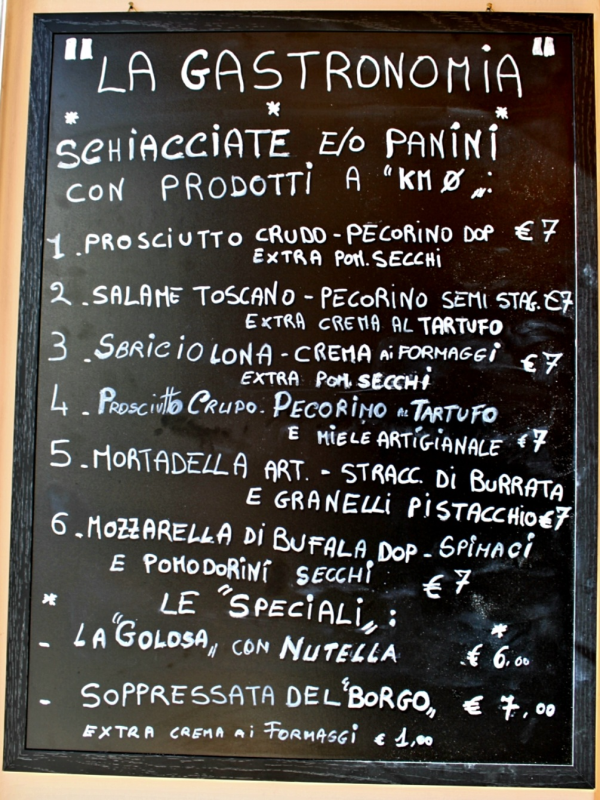 "LA GASTRONOMIA"
* * *
SCHIACCIATE E/O PANINI
CON PRODOTTI A "KM Ø„:
1. PROSCIUTTO CRUDO - PECORINO DOP € 7
EXTRA POM. SECCHI
2. SALAME TOSCANO - PECORINO SEMI STAG. €7
EXTRA CREMA AL TARTUFO
3. SBRICIOLONA - CREMA Ai FORMAGGi € 7
EXTRA POM. SECCHI
4. PROSCIUTTO CRUDO. PECORINO AL TARTUFO
E MIELE ARTIGIANALE € 7
5. MORTADELLA ART. - STRACC. DI BURRATA
E GRANELLI PISTACCHIO €7
6. MOZZARELLA DI BUFALA DOP - SPINACI
E POMODORINI SECCHI € 7
* LE "SPECIALI„: *
- LA "GOLOSA„ CON NUTELLA € 6,00
- SOPPRESSATA DEL "BORGO„ € 7,00
EXTRA CREMA Ai FORMAGGI € 1,00